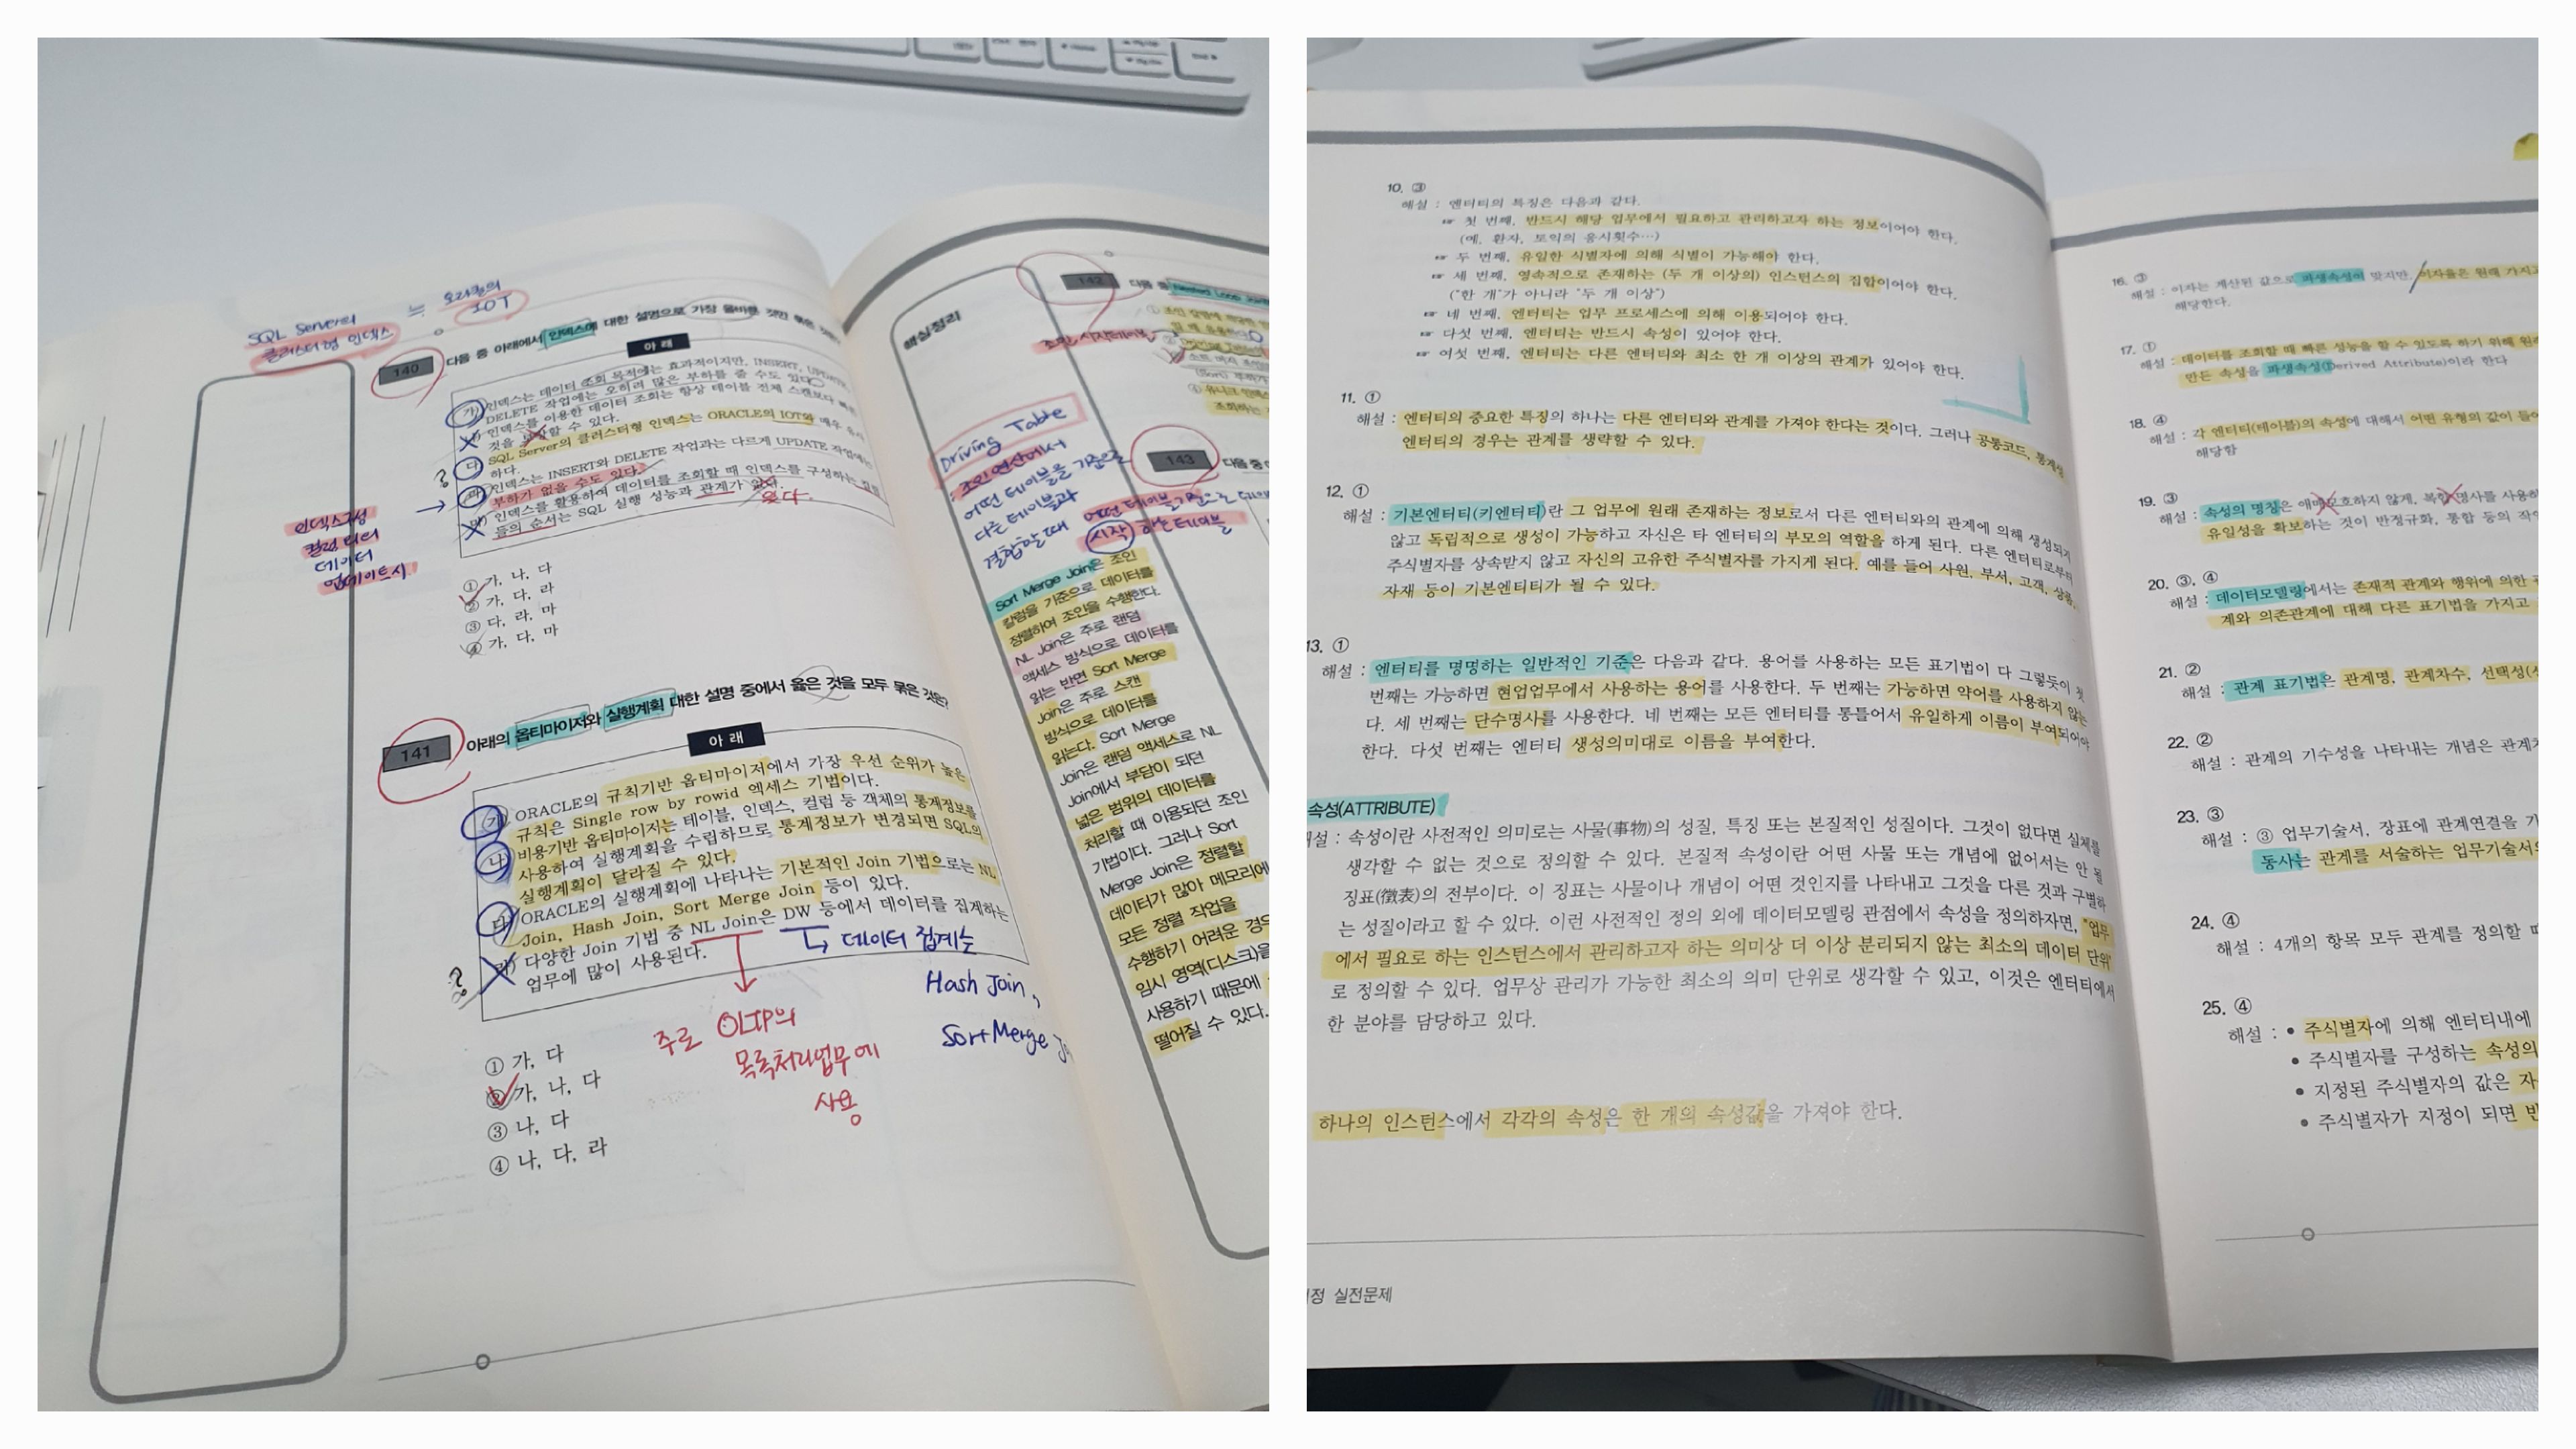 SQL Server의
클러스터형 인덱스
≒ 오라클의
IOT
140 다음 중 아래에서 인덱스에 대한 설명으로 가장 올바른 것만 묶은
아 래
가) 인덱스는 데이터 조회 목적에는 효과적이지만, INSERT, UPDATE,
DELETE 작업에는 오히려 많은 부하를 줄 수도 있다.
나) 인덱스를 이용한 데이터 조회는 항상 테이블 전체 스캔보다 빠른
것을 보장할 수 있다.
다) SQL Server의 클러스터형 인덱스는 ORACLE의 IOT와 매우
하다.
라) 인덱스는 INSERT와 DELETE 작업과는 다르게 UPDATE 작업에는
부하가 없을 수도 있다.
마) 인덱스를 활용하여 데이터를 조회할 때 인덱스를 구성하는
들의 순서는 SQL 실행 성능과 관계가 없다.
있다.
?
→
인덱스구성
컬럼 외의
데이터
업데이트시
① 가, 나, 다
② 가, 다, 라
③ 다, 라, 마
④ 가, 다, 마
141 아래의 옵티마이저와 실행계획 대한 설명 중에서 옳은 것을 모두 묶은 것은?
아 래
가) ORACLE의 규칙기반 옵티마이저에서 가장 우선 순위가 높은
규칙은 Single row by rowid 엑세스 기법이다.
나) 비용기반 옵티마이저는 테이블, 인덱스, 컬럼 등 객체의 통계정보를
사용하여 실행계획을 수립하므로 통계정보가 변경되면 SQL의
실행계획이 달라질 수 있다.
다) ORACLE의 실행계획에 나타나는 기본적인 Join 기법으로는 NL
Join, Hash Join, Sort Merge Join 등이 있다.
라) 다양한 Join 기법 중 NL Join은 DW 등에서 데이터를 집계하는
업무에 많이 사용된다.
?
데이터 집계는
Hash Join,
Sort Merge
주로 OLTP의
목록처리업무에
사용
① 가, 다
② 가, 나, 다
③ 나, 다
④ 나, 다, 라
핵심정리
Driving Table
: 조인 연산에서
어떤 테이블을 기준으로
다른 테이블과
결합할 때
어떤 테이블
시작 하는 테이블
Sort Merge Join은 조인
칼럼을 기준으로 데이터를
정렬하여 조인을 수행한다.
NL Join은 주로 랜덤
액세스 방식으로 데이터를
읽는 반면 Sort Merge
Join은 주로 스캔
방식으로 데이터를
읽는다. Sort Merge
Join은 랜덤 액세스로 NL
Join에서 부담이 되던
넓은 범위의 데이터를
처리할 때 이용되던 조인
기법이다. 그러나 Sort
Merge Join은 정렬할
데이터가 많아 메모리에
모든 정렬 작업을
수행하기 어려운 경우
임시 영역(디스크)을
사용하기 때문에
떨어질 수 있다.
142 다음 중 Nested Loop
143 다음 중
10. ③
해설 : 엔터티의 특징은 다음과 같다.
☞ 첫 번째, 반드시 해당 업무에서 필요하고 관리하고자 하는 정보이어야 한다.
(예, 환자, 토익의 응시횟수…)
☞ 두 번째, 유일한 식별자에 의해 식별이 가능해야 한다.
☞ 세 번째, 영속적으로 존재하는 (두 개 이상의) 인스턴스의 집합이어야 한다.
("한 개"가 아니라 "두 개 이상")
☞ 네 번째, 엔터티는 업무 프로세스에 의해 이용되어야 한다.
☞ 다섯 번째, 엔터티는 반드시 속성이 있어야 한다.
☞ 여섯 번째, 엔터티는 다른 엔터티와 최소 한 개 이상의 관계가 있어야 한다.
11. ①
해설 : 엔터티의 중요한 특징의 하나는 다른 엔터티와 관계를 가져야 한다는 것이다. 그러나 공통코드, 통계성
엔터티의 경우는 관계를 생략할 수 있다.
12. ①
해설 : 기본엔터티(키엔터티)란 그 업무에 원래 존재하는 정보로서 다른 엔터티와의 관계에 의해 생성되지
않고 독립적으로 생성이 가능하고 자신은 타 엔터티의 부모의 역할을 하게 된다. 다른 엔터티로부터
주식별자를 상속받지 않고 자신의 고유한 주식별자를 가지게 된다. 예를 들어 사원, 부서, 고객, 상품,
자재 등이 기본엔터티가 될 수 있다.
13. ①
해설 : 엔터티를 명명하는 일반적인 기준은 다음과 같다. 용어를 사용하는 모든 표기법이 다 그렇듯이 첫
번째는 가능하면 현업업무에서 사용하는 용어를 사용한다. 두 번째는 가능하면 약어를 사용하지 않는
다. 세 번째는 단수명사를 사용한다. 네 번째는 모든 엔터티를 통틀어서 유일하게 이름이 부여되어야
한다. 다섯 번째는 엔터티 생성의미대로 이름을 부여한다.
속성(ATTRIBUTE)
해설 : 속성이란 사전적인 의미로는 사물(事物)의 성질, 특징 또는 본질적인 성질이다. 그것이 없다면 실체를
생각할 수 없는 것으로 정의할 수 있다. 본질적 속성이란 어떤 사물 또는 개념에 없어서는 안 될
징표(徵表)의 전부이다. 이 징표는 사물이나 개념이 어떤 것인지를 나타내고 그것을 다른 것과 구별하
는 성질이라고 할 수 있다. 이런 사전적인 정의 외에 데이터모델링 관점에서 속성을 정의하자면, "업무
에서 필요로 하는 인스턴스에서 관리하고자 하는 의미상 더 이상 분리되지 않는 최소의 데이터 단위"
로 정의할 수 있다. 업무상 관리가 가능한 최소의 의미 단위로 생각할 수 있고, 이것은 엔터티에서
한 분야를 담당하고 있다.
하나의 인스턴스에서 각각의 속성은 한 개의 속성값을 가져야 한다.
정 실전문제
16. ③
해설 : 이자는 계산된 값으로 파생속성이 맞지만, 이자율은 원래 가지고
해당한다.
17. ①
해설 : 데이터를 조회할 때 빠른 성능을 할 수 있도록 하기 위해 원래
만든 속성을 파생속성(Derived Attribute)이라 한다
18. ④
해설 : 각 엔터티(테이블)의 속성에 대해서 어떤 유형의 값이 들어
해당함
19. ③
해설 : 속성의 명칭은 애매모호하지 않게, 복합 명사를 사용하
유일성을 확보하는 것이 반정규화, 통합 등의 작
20. ③, ④
해설 : 데이터모델링에서는 존재적 관계와 행위에 의한
계와 의존관계에 대해 다른 표기법을 가지고
21. ②
해설 : 관계 표기법은 관계명, 관계차수, 선택성(
22. ②
해설 : 관계의 기수성을 나타내는 개념은 관계
23. ③
해설 : ③ 업무기술서, 장표에 관계연결을 가
동사는 관계를 서술하는 업무기술서의
24. ④
해설 : 4개의 항목 모두 관계를 정의할 때
25. ④
해설 : • 주식별자에 의해 엔터티내에
• 주식별자를 구성하는 속성의
• 지정된 주식별자의 값은 자
• 주식별자가 지정이 되면 반